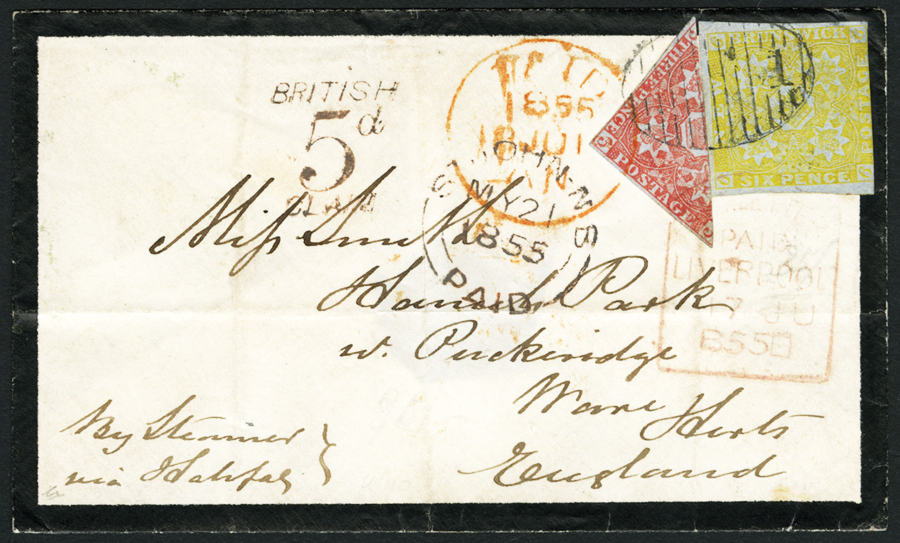 BRITISH
5d
PAID
1855
18 JU 1
ST JOHN N B
MY 21
1855
PAID
THREE PENCE
POSTAGE
NEW BRUNSWICK
POSTAGE
SIX PENCE
1
PAID
LIVERPOOL
17 JU
1855
Miss Smith
Park
nr. Puckeridge
Ware
Herts
England
By Steamer
via Halifax